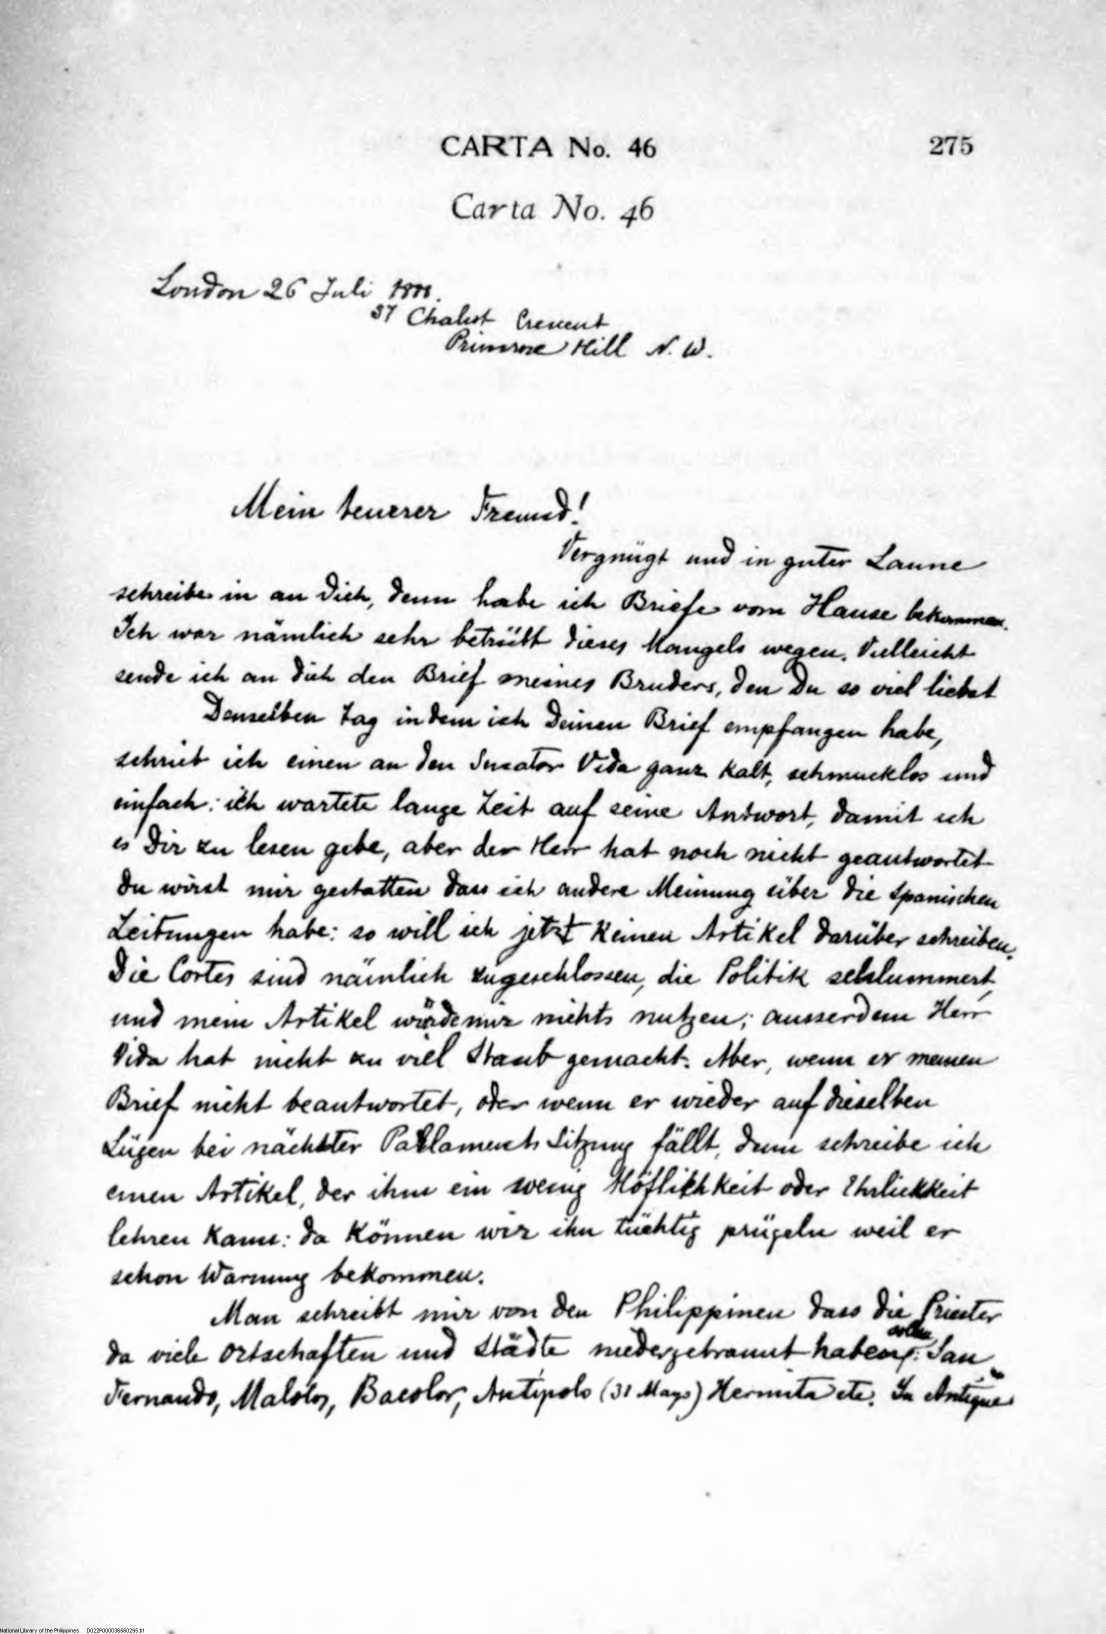 CARTA No. 46 275
Carta No. 46
London 26 Juli 1888.
37 Chalcot Crescent
Primrose Hill N. W.
Mein teuerer Freund!
Vergnügt und in guter Laune
schreibe in an Dich, denn habe ich Briefe vom Hause bekommen.
Ich war nämlich sehr betrübt dieses Mangels wegen. Vielleicht
sende ich an Dich den Brief meines Bruders, den Du so viel liebst
Denselben Tag in dem ich Deinen Brief empfangen habe,
schrieb ich einen an den Senator Vida ganz kalt, schmucklos und
einfach: ich wartete lange Zeit auf seine Antwort, damit ich
es Dir zu lesen gebe, aber der Herr hat noch nicht geantwortet
Du wirst mir gestatten dass ich andere Meinung über die spanischen
Zeitungen habe: so will ich jetzt keinen Artikel darüber schreiben.
Die Cortes sind nämlich zugeschlossen, die Politik schlummert,
und mein Artikel würde mir nichts nutzen; ausserdem Herr
Vida hat nicht zu viel Staub gemacht. Aber, wenn er meinen
Brief nicht beantwortet, oder wenn er wieder auf dieselben
Lügen bei nächster Parlaments Sitzung fällt, denn schreibe ich
einen Artikel, der ihm ein wenig Höflichkeit oder Ehrlichkeit
lehren kann: da können wir ihn tüchtig prügeln weil er
schon Warnung bekommen.
Man schreibt mir von den Philippinen dass die Priester
da viele Ortschaften und Städte niedergebrannt haben sollen: San
Fernando, Malolos, Bacolor, Antipolo (31 Mayo) Hermita etc. In Antique
National Library of the Philippines